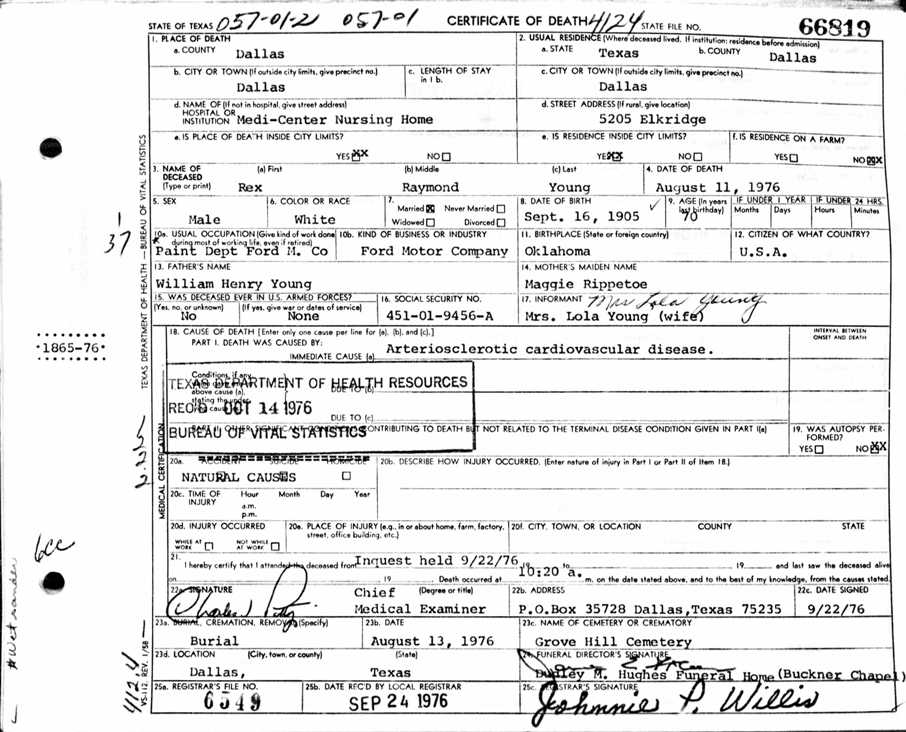 STATE OF TEXAS 057-01-2 057-01 CERTIFICATE OF DEATH 4124 STATE FILE NO. 66819
1. PLACE OF DEATH
a. COUNTY Dallas
2. USUAL RESIDENCE (Where deceased lived. If institution: residence before admission)
a. STATE Texas b. COUNTY Dallas
b. CITY OR TOWN (If outside city limits, give precinct no.) Dallas
c. LENGTH OF STAY in 1 b.
c. CITY OR TOWN (If outside city limits, give precinct no.) Dallas
d. NAME OF (If not in hospital, give street address) HOSPITAL OR INSTITUTION Medi-Center Nursing Home
d. STREET ADDRESS (If rural, give location) 5205 Elkridge
e. IS PLACE OF DEATH INSIDE CITY LIMITS? YES XX NO
e. IS RESIDENCE INSIDE CITY LIMITS? YES XX NO
f. IS RESIDENCE ON A FARM? YES NO XX
3. NAME OF DECEASED (Type or print) (a) First Rex (b) Middle Raymond (c) Last Young
4. DATE OF DEATH August 11, 1976
5. SEX Male
6. COLOR OR RACE White
7. Married X Never Married Widowed Divorced
8. DATE OF BIRTH Sept. 16, 1905
9. AGE (In years last birthday) 70
IF UNDER 1 YEAR Months Days
IF UNDER 24 HRS. Hours Minutes
10a. USUAL OCCUPATION (Give kind of work done during most of working life, even if retired) Paint Dept Ford M. Co
10b. KIND OF BUSINESS OR INDUSTRY Ford Motor Company
11. BIRTHPLACE (State or foreign country) Oklahoma
12. CITIZEN OF WHAT COUNTRY? U.S.A.
13. FATHER'S NAME William Henry Young
14. MOTHER'S MAIDEN NAME Maggie Rippetoe
15. WAS DECEASED EVER IN U.S. ARMED FORCES? (Yes, no, or unknown) No (If yes, give war or dates of service) None
16. SOCIAL SECURITY NO. 451-01-9456-A
17. INFORMANT Mrs Lola Young
Mrs. Lola Young (wife)
18. CAUSE OF DEATH [Enter only one cause per line for (a), (b), and (c).]
PART I. DEATH WAS CAUSED BY:
IMMEDIATE CAUSE (a) Arteriosclerotic cardiovascular disease.
INTERVAL BETWEEN ONSET AND DEATH
Conditions, if any, above cause (a), stating the under
DUE TO (b)
DUE TO (c)
TEXAS DEPARTMENT OF HEALTH RESOURCES
REC'D OCT 14 1976
BUREAU OF VITAL STATISTICS
CONTRIBUTING TO DEATH BUT NOT RELATED TO THE TERMINAL DISEASE CONDITION GIVEN IN PART I(a)
19. WAS AUTOPSY PERFORMED? YES NO XX
20a. ACCIDENT SUICIDE HOMICIDE
NATURAL CAUSES
20b. DESCRIBE HOW INJURY OCCURRED. (Enter nature of injury in Part I or Part II of Item 18.)
20c. TIME OF INJURY Hour Month Day Year
a.m.
p.m.
20d. INJURY OCCURRED WHILE AT WORK NOT WHILE AT WORK
20e. PLACE OF INJURY (e.g., in or about home, farm, factory, street, office building, etc.)
20f. CITY, TOWN, OR LOCATION COUNTY STATE
21. I hereby certify that I attended the deceased from Inquest held 9/22/76 19 to 19 and last saw the deceased alive
on 19 Death occurred at 10:20 a. m. on the date stated above, and to the best of my knowledge, from the causes stated.
22a. SIGNATURE Charles Petty (Degree or title) Chief Medical Examiner
22b. ADDRESS P.O.Box 35728 Dallas,Texas 75235
22c. DATE SIGNED 9/22/76
23a. BURIAL, CREMATION, REMOVAL (Specify) Burial
23b. DATE August 13, 1976
23c. NAME OF CEMETERY OR CREMATORY Grove Hill Cemetery
23d. LOCATION (City, town, or county) Dallas, (State) Texas
24. FUNERAL DIRECTOR'S SIGNATURE
Dudley M. Hughes Funeral Home (Buckner Chapel)
25a. REGISTRAR'S FILE NO. 6549
25b. DATE REC'D BY LOCAL REGISTRAR SEP 24 1976
25c. REGISTRAR'S SIGNATURE Johnnie P. Willis
TEXAS DEPARTMENT OF HEALTH — BUREAU OF VITAL STATISTICS
MEDICAL CERTIFICATION
VS-112 REV. 1/58
1
37
*1865-76*
6cc
4124